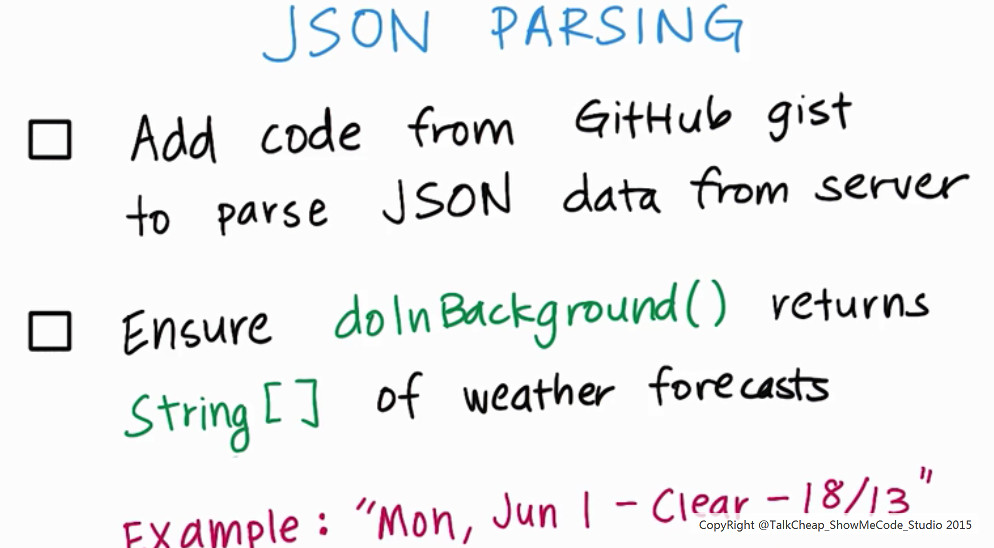 JSON PARSING
Add code from GitHub gist
to parse JSON data from server
Ensure doInBackground() returns
String[] of weather forecasts
Example: "Mon, Jun 1 - Clear - 18/13"
CopyRight @TalkCheap_ShowMeCode_Studio 2015